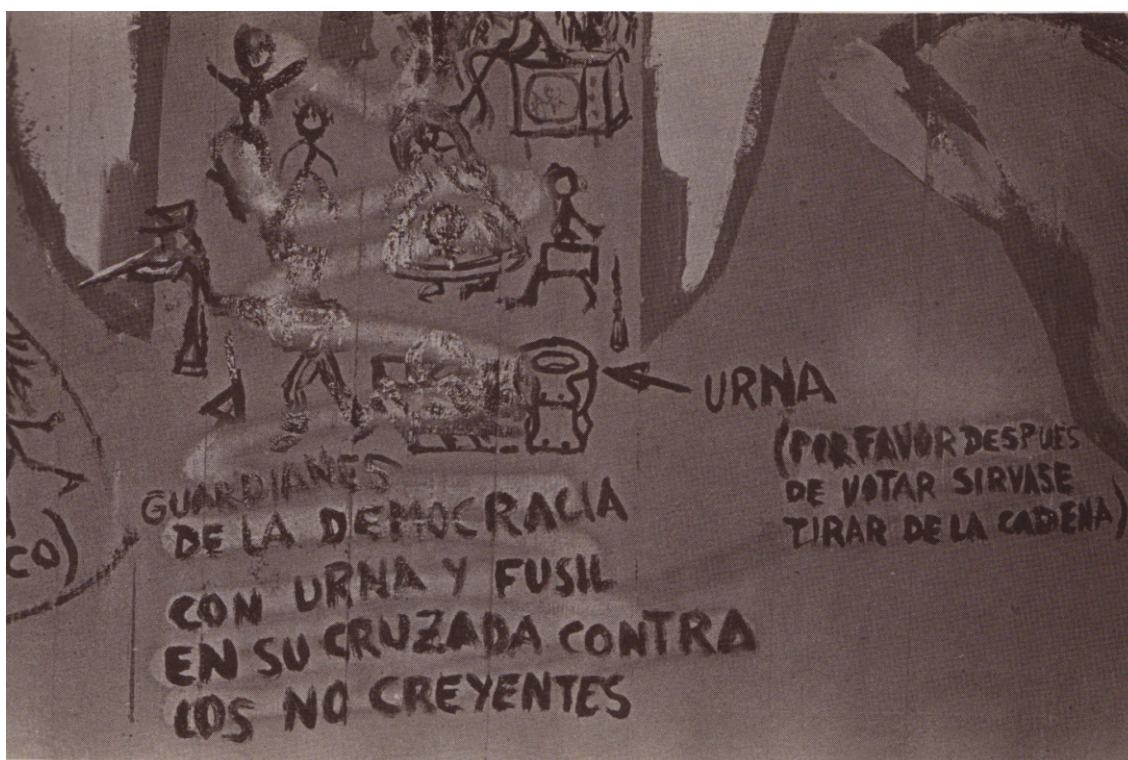 URNA
(POR FAVOR DESPUES
DE VOTAR SIRVASE
TIRAR DE LA CADENA)
GUARDIANES
DE LA DEMOCRACIA
CON URNA Y FUSIL
EN SU CRUZADA CONTRA
LOS NO CREYENTES
CO)